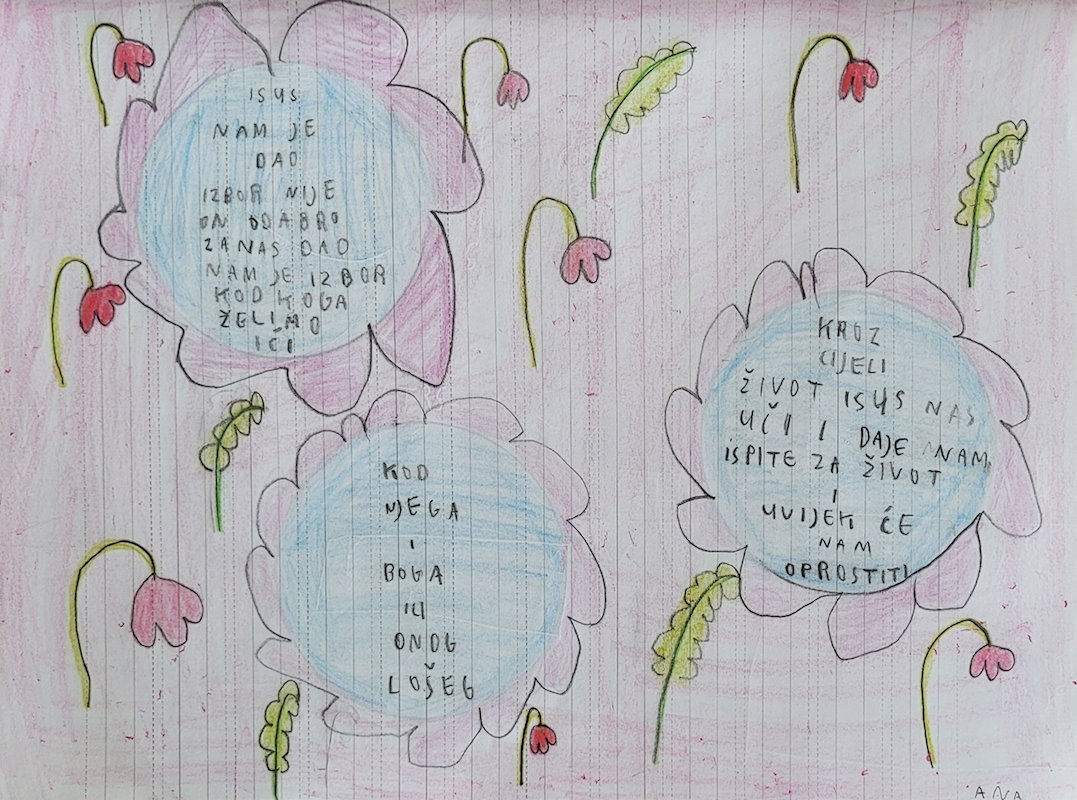 ISUS
NAM JE
DAO
IZBOR NIJE
ON ODABRO
ZA NAS DAO
NAM JE IZBOR
KOD KOGA
ŽELIMO
IĆI
KOD
NJEGA
I
BOGA
ILI
ONOG
LOŠEG
KROZ
CIJELI
ŽIVOT ISUS NAS
UČI I DAJE NAM
ISPITE ZA ŽIVOT
I
UVIJEK ĆE
NAM
OPROSTITI
ANA